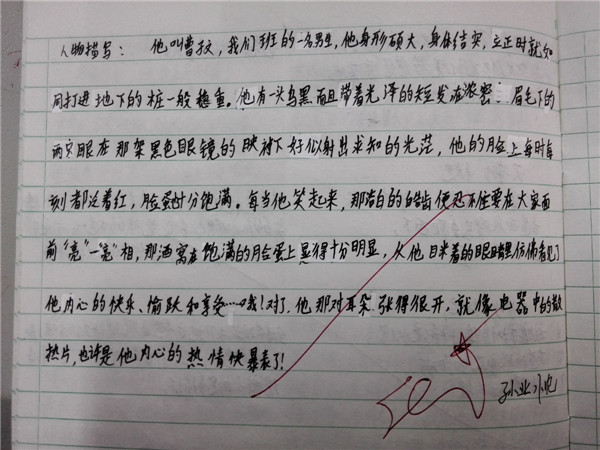 人物描写：他叫曹孜，我们班的一名男生，他身形硕大，身体结实，立正时就如
同打进地下的桩一般稳重。他有一头乌黑而且带着光泽的短发在浓密 眉毛下的
两只眼在那架黑色眼镜的映衬下好似射出求知的光茫，他的脸上每时每
刻都泛着红，脸蛋十分饱满。每当他笑起来，那洁白的白齿便忍不住要在大家面
前"亮"一"亮"相，那酒窝在饱满的脸蛋上显得十分明显，从他目米着的眼睛里仿佛看见了
他内心的快乐、愉跃和享受……哦！对了，他那对耳朵张得很开，就像电器中的散
热片，也许是他内心的热情快暴表了！